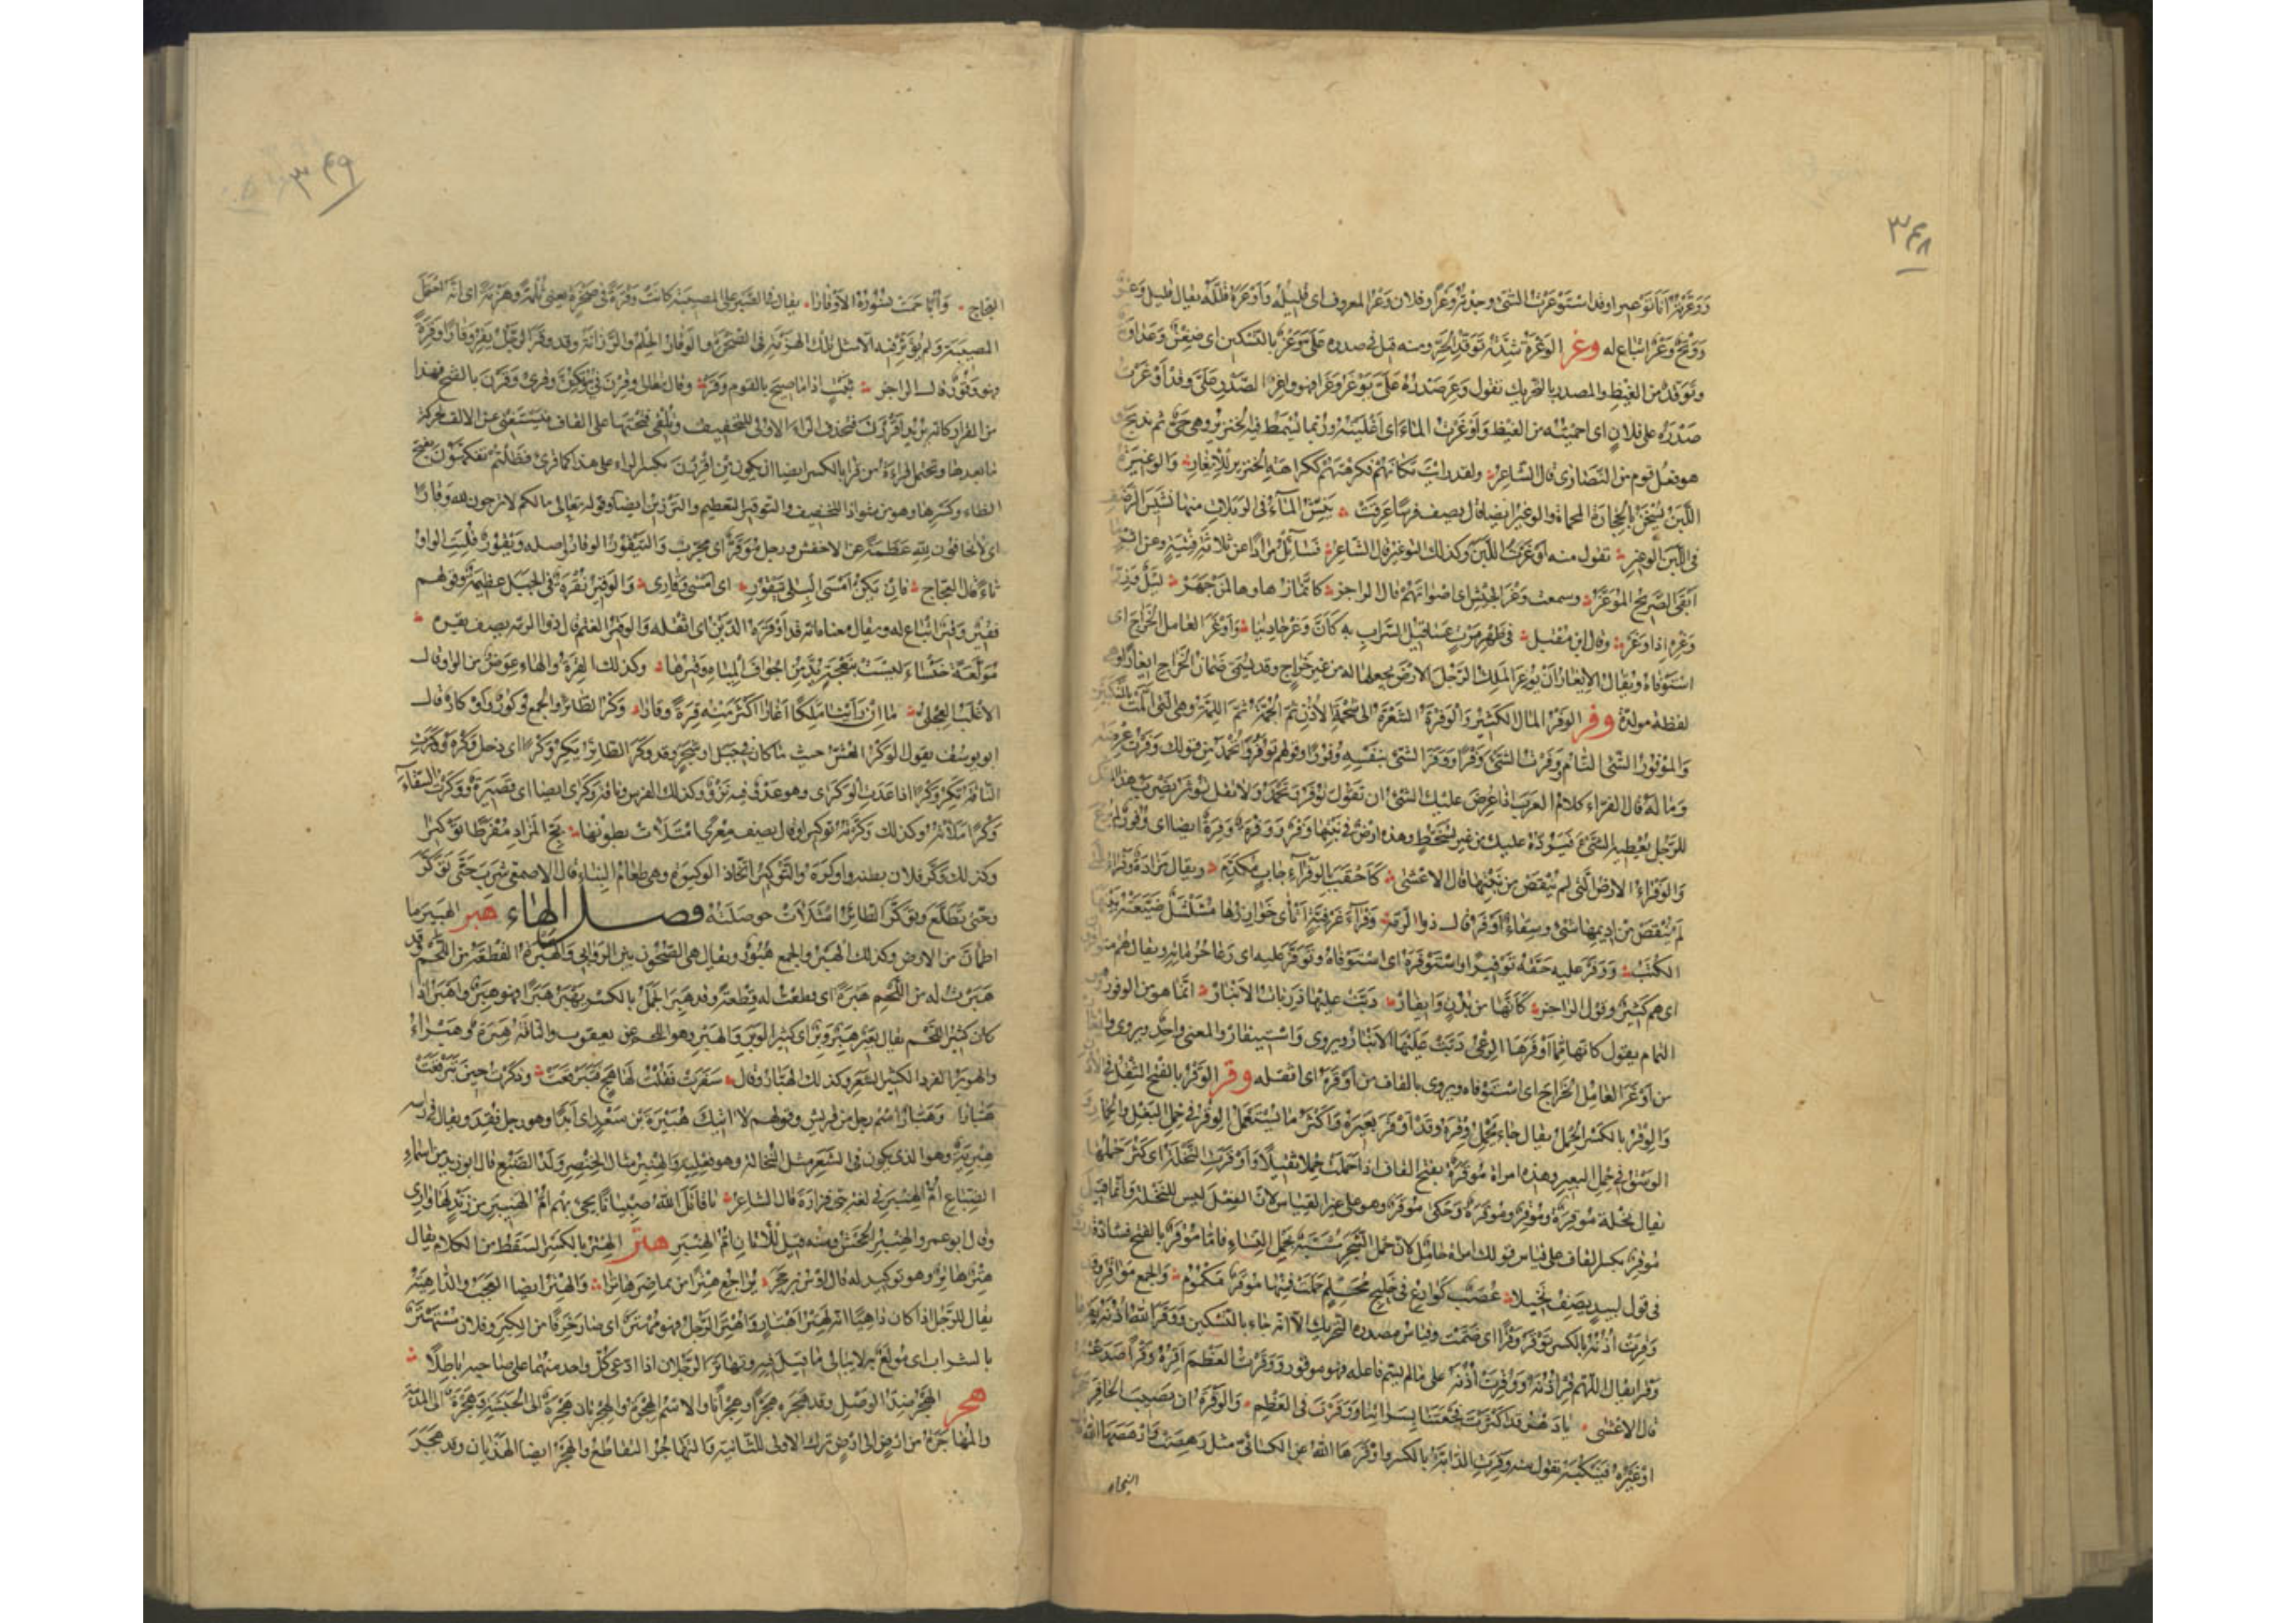 ٣٤٨
وغر الوغرة شدة توقد الحر ومنه قيل فى صدره على وغر بالتسكين اى ضغن وعداوة
وتوقد من الغيظ والمصدر بالتحريك تقول وغر صدره على يوغر وغرا فهو واغر الصدر على وقد اوغرت
صدره على فلان اى احميته من الغيظ واوغرت الماء اى اغليته وربما يسمط فيه الخنزير وهى حى ثم يذبح
هو فعل قوم من النصارى قال الشاعر ولقد رايت مكانهم فكرهتهم ككراهة الخنزير للايغار والوغيرة
اللبن يسخن بالحجارة المحماة والوغير ايضا قال يصف فرسا عرقت ينش الماء فى الربلات منها نشيش الرضف
فى اللبن الوغير تقول منه اوغرت اللبن وكذلك التوغير قال الشاعر فسائل مرادا عن ثلاثة فتية وعن اثر
ابقى الصريح الموغر وسمعت وغر الجيش اى اصواتهم قال الراجز كانما زهاوها لمن جهر ليل ورز
وغره اذا وغر وقال ابن مقبل فى ظهر مرت عساقيل السراب به كان وغر حاديها واوغر العامل الخراج اى
استوفاه ويقال الايغار ان يوغر الملك الرجل الارض يجعلها له من غير خراج وقد يسمى ضمان الخراج ايغارا وهى
لفظة مولدة وفر الوفر المال الكثير والوفرة الشعرة الى شحمة الاذن ثم الجمة ثم اللمة وهى التى المت بالمنكبين
والموفور الشى التام ووفرت الشى وفرا ووفر الشى بنفسه وفورا وقولهم توفر وتحمد من قولك وفرت عرضه
وماله قال الفراء كلام العرب اذا عرض عليك الشى ان تقول توفر وتحمد ولا تقل توثر يضرب هذا المثل
للرجل يعطيه الشى فيرده عليك من غير تسخط وهذه ارض فى نبتها وفر ووفرة وفرة ايضا اى وفور لم يرع
والوفراء الارض التى لم ينقص من نبتها قال الاعشى كاحقب بالوفراء جاب مكدم ويقال مزادة وفراء
لم ينقص من اديمها شى وسقاء اوفر قال ذو الرمة وفراء غرفية اثاى خوارزها مشلشل ضيعته بينها
الكتب ووفر عليه حقه توفيرا واستوفره اى استوفاه وتوفر عليه اى رعا حرماته ويقال هم متوافرون
اى هم كثير وقول الراجز كانها من بدن وايفار دبت عليها ذربات الانبار انما هو من الوفور
التمام يقول كانها مما اوفرها الرعى دبت عليها الانبار ويروى واستيفار والمعنى واحد ويروى وايغار
من اوغر العامل الخراج اى استوفاه ويروى بالقاف من اوقره اى اثقله وقر الوقر بالفتح الثقل فى الاذن
والوقر بالكسر الحمل يقال جاء يحمل وقره وقد اوقر بعيره واكثر ما يستعمل الوقر فى حمل البغل والحمار
الوسق فى حمل البعير وهذه امراة موقرة بفتح القاف اذا حملت حملا ثقيلا واوقرت النخلة اى كثر حملها
يقال نخلة موقرة وموقر وموقرة وحكى موقر وهو على غير القياس لان الفعل ليس للنخلة وانما قيل
موقر بكسر القاف على قياس قولك امراة حامل لان حمل الشجر مشبه بحمل النساء فاما موقر بالفتح فشاذ
فى قول لبيد يصف نخيلا عصب كوارع فى خليج محلم حملت فمنها موقر مكموم والجمع مواقر
وقرت اذنه بالكسر توقر وقرا اى صمت وقياس مصدره التحريك الا انه جاء بالتسكين ووقر الله اذنه يقرها
وقرا يقال اللهم قر اذنه ووقرت اذنه على ما لم يسم فاعله فهو موقور ووقرت العظم اقره وقرا صدعته
قال الاعشى يا دهر قد اكثرت فجعتنا بسراتنا ووقرت فى العظم والوقرة ان يصيب الحافر حجر
او غيره فينكبه تقول منه وقرت الدابة بالكسر واوقرها الله عن الكسائى مثل رهصت وارهصها الله
العجاج
٣٤٩
العجاج وأبا حمت نسوره الاوقارا يقال فى الصبر على المصيبة كانت وقرة فى صخرة يعنى ثلمة وهزمة اى انه احتمل
المصيبة ولم يؤثر فيه الا مثل تلك الهزمة فى الصخرة والوقار الحلم والرزانة وقد وقر الرجل يقر وقارا وقرة
فهو وقور قال الراجز ثبت اذا ما صيح بالقوم وقر وقال تعالى وقرن فى بيوتكن وقرئ وقرن بالفتح فهذا
من القرار كانه يريد اقررن فتحذف الراء الاولى للتخفيف وتلقى فتحتها على القاف فيستغنى عن الالف لحركة
ما بعدها وتحتمل قراءة من قرا بالكسر ايضا ان يكون من اقررن بكسر الراء على هذا كما قرئ فظلتم تفكهون بفتح
الظاء وكسرها وهو من شواذ التخفيف والتوقير التعظيم والترزين ايضا وقوله تعالى ما لكم لا ترجون لله وقارا
اى لا تخافون لله عظمة عن الاخفش ورجل موقر اى مجرب والتيقور الوقار واصله ويقور قلبت الواو
تاء قال العجاج فان يكن امسى البلى تيقورى اى امسى وقارى والوقير نقرة فى الجبل عظيمة وقولهم
فقير وقير اتباع له ويقال معناه انه قد اوقره الدين اى اثقله والوقير الغنم قال ذو الرمة يصف بقره
مولعة خنساء ليست بنعجة يدمن اجواف المياه وقيرها وكذلك القرة والهاء عوض من الواو قال
الاغلب العجلى ما ان راينا ملكا اغارا اكثر منه قرة وقارا وكر الطائر والجمع وكور واوكار قال
ابو يوسف يقول الوكر العش حيث ما كان فى جبل او شجر وقد وكر الطائر يكر وكرا اى دخل وكره ووكرت
الناقة تكر وكرا اذا عدت الوكرى وهو عدو فيه نزو وكذلك الفرس وناقة وكرى ايضا اى قصيرة ووكرت السقاء
وكرا ملاته وكذلك وكرته توكيرا وقال يصف معزى امتلات بطونها بج المزاد مفرطا توكيرا
وكذلك وكر فلان بطنه واوكره والتوكير اتخاذ الوكيرة وهى طعام البناء قال الاصمعى شرب حتى توكر
وحتى تضلع وتوكر الطائر امتلات حوصلته فصل الهاء هبر الهبير ما
اطمان من الارض وكذلك الهبر والجمع هبور ويقال هى الصحون بين الروابى والهبرة القطعة من اللحم وقد
هبرت له من اللحم هبرة اى قطعت له قطعة وقد هبر الجمل بالكسر يهبر هبرا فهو هبر واهبر اذا
كان كثير اللحم يقال بعير هبر وبر اى كثير الوبر والهبر وهو اللحم عن يعقوب والناقة هبرة وهبراء
والهوبر القرد الكثير الشعر وكذلك الهبار وقال سفرت فقلت لها هج فتبرقعت وذكرت حين تبرقعت
هبارا وهبار اسم رجل من قريش وقولهم لا اتيك هبيرة بن سعد اى ابدا وهو رجل فقد ويقال فى راسه
هبرية وهو الذى يكون فى الشعر مثل النخالة وهو فعلية والهنبر مثال الخنصر ولد الضبع قال ابو زيد من اسماء
الضباع ام الهنبر فى لغة بنى فزارة قال الشاعر يا قاتل الله صبيانا يجئ بهم ام الهنيبر من زند لها وارى
وقال ابو عمرو الهنبر الجحش ومنه قيل للاتان ام الهنبر هتر الهتر بالكسر السقط من الكلام يقال
هتر هاتر وهو توكيد له قال اوس بن حجر يراجع هترا من تماضر هاترا والهتر ايضا العجب والداهية
يقال للرجل اذا كان داهيا انه لهتر اهتار واهتر الرجل فهو مهتر اى صار خرفا من الكبر وفلان مستهتر
بالشراب اى مولع به لا يبالى ما قيل فيه وتهاتر الرجلان اذا ادعى كل واحد منهما على صاحبه باطلا
هجر الهجر ضد الوصل وقد هجره هجرا وهجرانا والاسم الهجرة والهجرتان هجرة الى الحبشة وهجرة الى المدينة
والمهاجرة من ارض الى ارض ترك الاولى للثانية والتهاجر التقاطع والهجر ايضا الهذيان وقد هجر